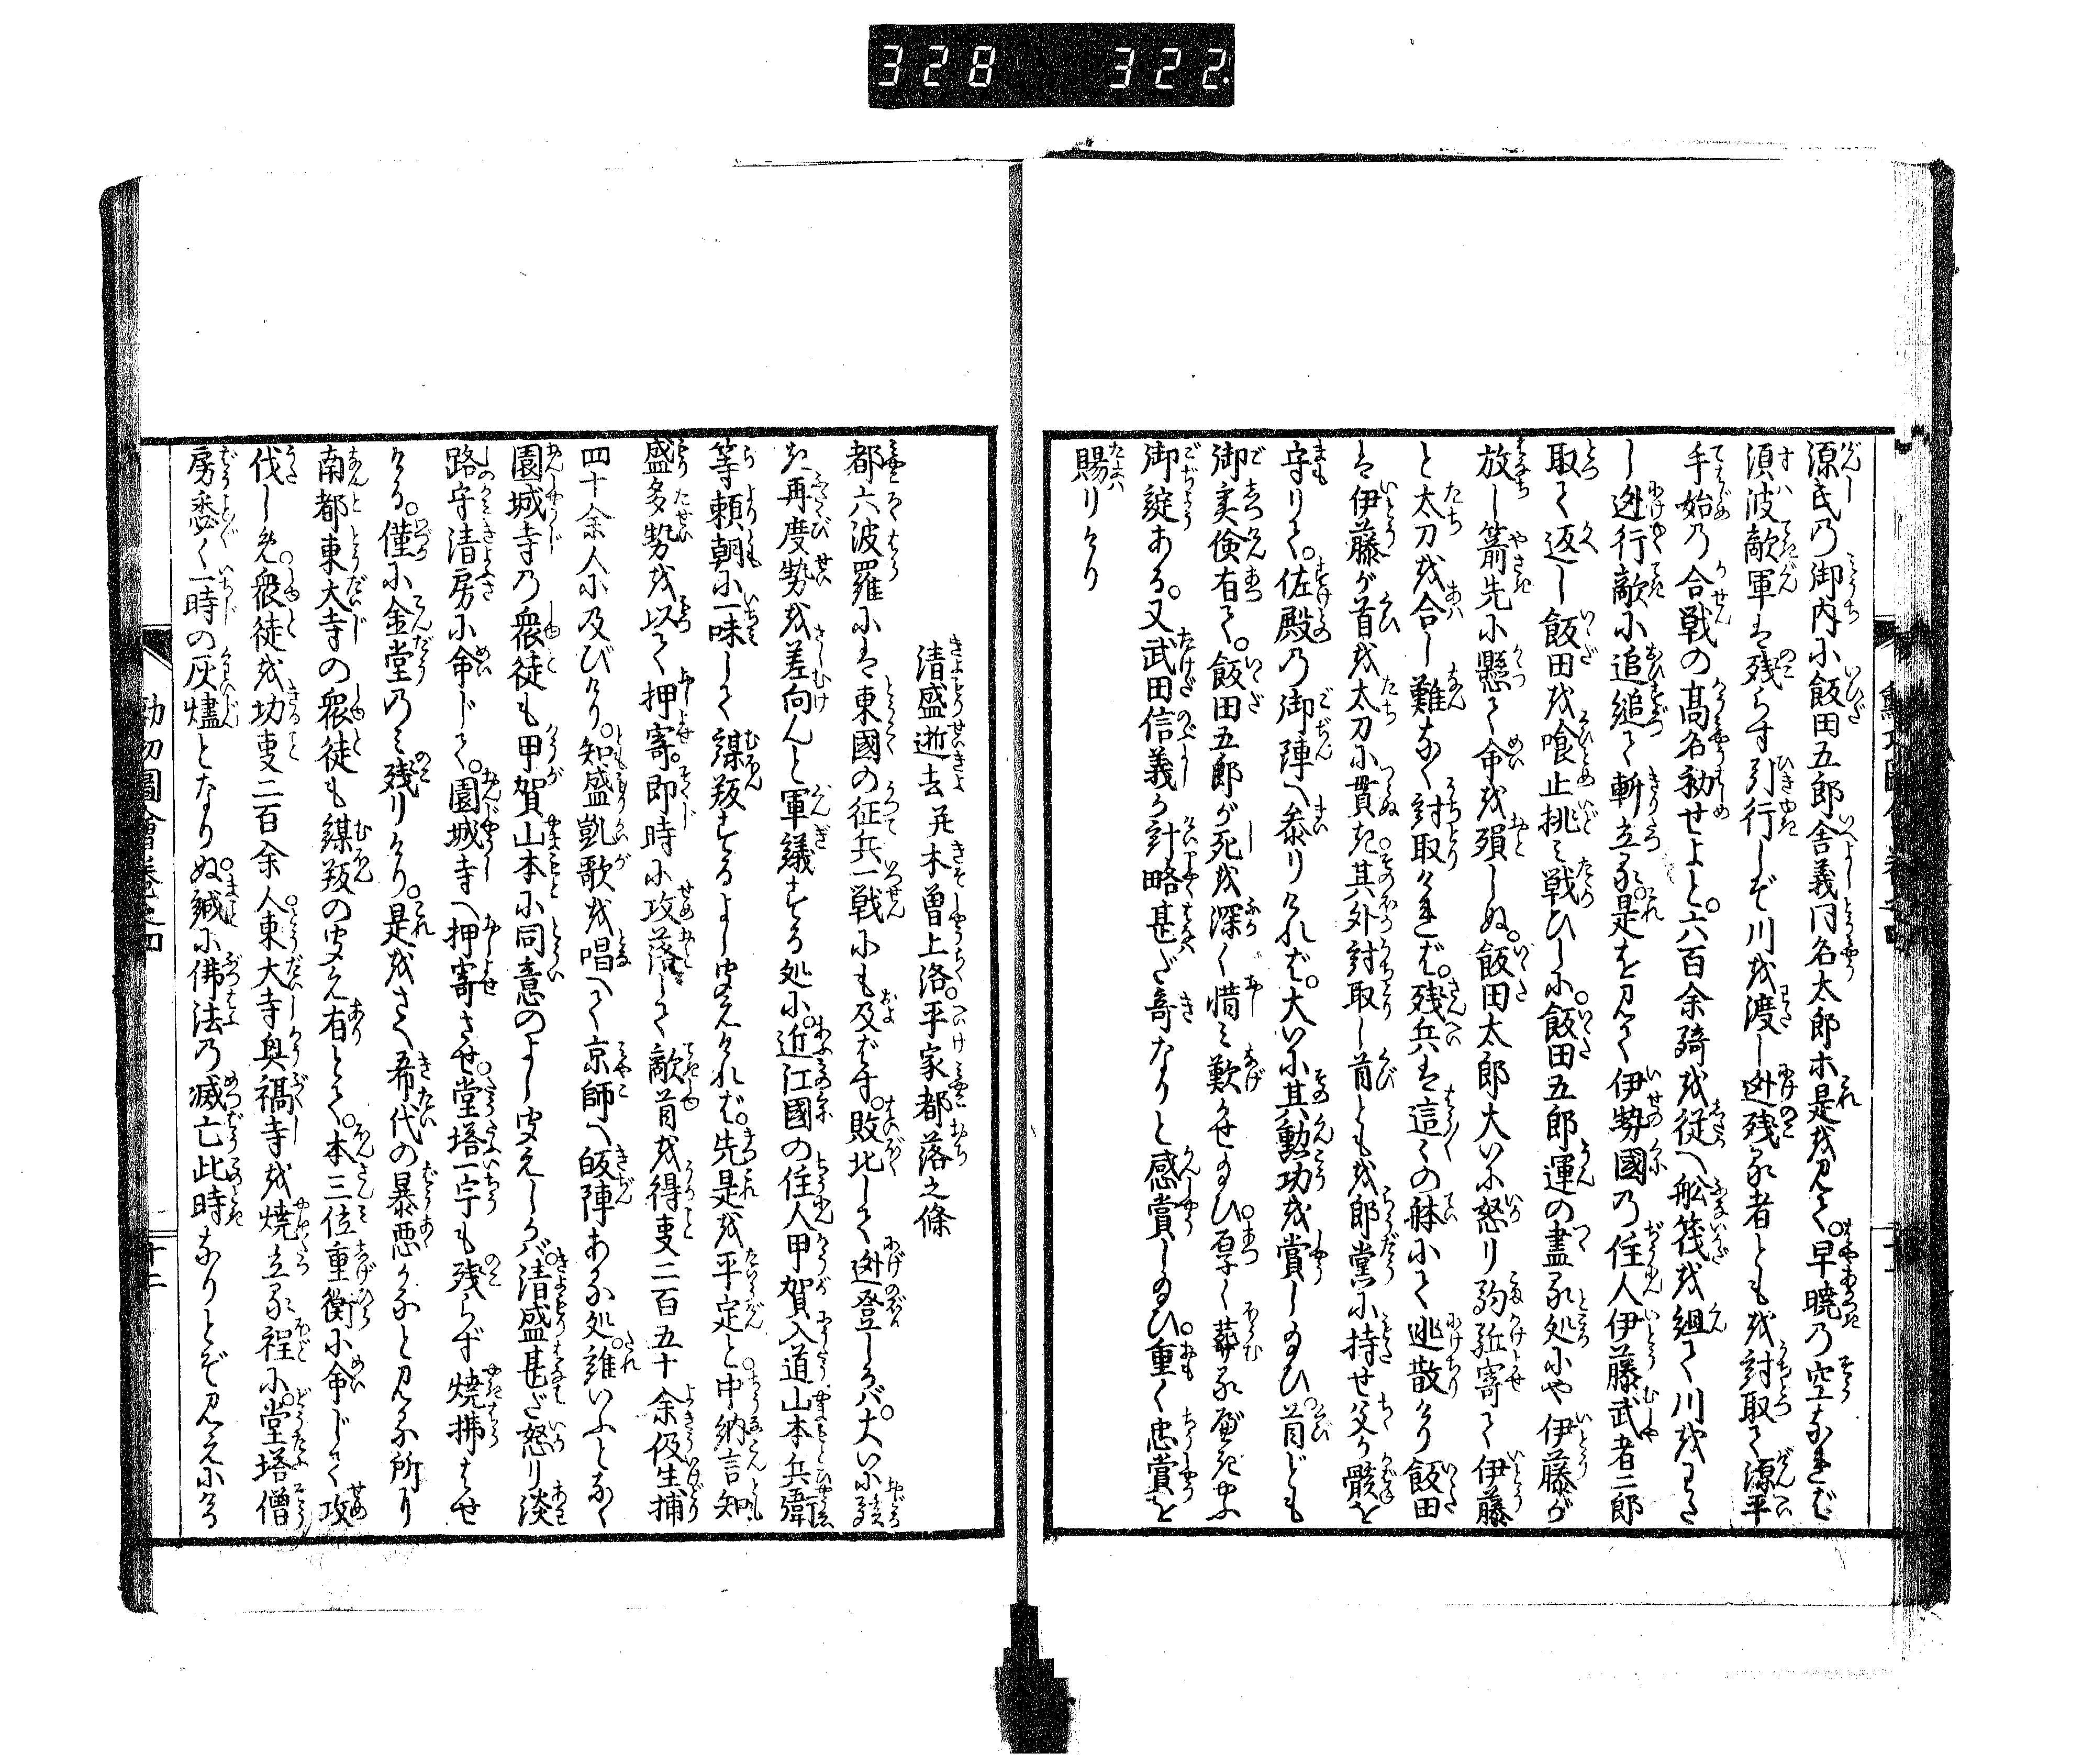 328 322
源氏の御内に飯田五郎舎義同名太郎ホ是を見て。早暁の空なれば
須波敵軍は残らず引行しぞ川を渡し迯残る者ともを討取て源平
手始の合戦の高名初せよと。六百余騎を従へ舩筏を組て川をわた
し迯行敵に追縋て斬立る是を見て伊勢國の住人伊藤武者二郎
取て返し飯田を喰止挑み戦ひしに飯田五郎運の盡る処にや伊藤が
放し箭先に懸て命を殞しぬ。飯田太郎大いに怒り駒近寄て伊藤
と太刀を合し難なく討取ければ。残兵は這々の躰にて逃散けり飯田
は伊藤が首を太刀に貫き其外討取し首ともを郎黨に持せ父が骸を
守りて。佐殿の御陣へ参りければ。大いに其勲功を賞し給ひ。首ども
御実倹有て。飯田五郎が死を深く惜み歎かせ給ひ厚く葬るべきやふ
御諚ある。又武田信義が計略甚だ奇なりと感賞し給ひ。重く忠賞を
賜りけり
清盛逝去并木曽上洛。平家都落之條
都六波羅には東國の征兵一戦にも及ばず。敗北して迯登しかバ。大いに
き再度勢を差向んと軍議する処に。近江國の住人甲賀入道山本兵衛
等頼朝に一味して謀叛するよし聞えければ。先是を平定と。中納言知
盛多勢を以て押寄。即時に攻落して敵首を得事二百五十余級生捕
四十余人に及びけり。知盛凱歌を唱へて京師へ皈陣ある処。誰いふとなく
園城寺の衆徒も甲賀山本に同意のよし聞えしかバ。清盛甚だ怒り淡
路守清房に命じて。園城寺へ押寄させ。堂塔一宇も残らず焼拂はせ
ける。僅に金堂のミ残りけり。是をさへ希代の暴悪かなと見る所り
南都東大寺の衆徒も謀叛の聞え有とて。本三位重衡に命じて攻
伐しめ。衆徒を切事二百余人。東大寺興福寺を焼立る程に。堂塔僧
房悉く一時の灰燼となりぬ。純に佛法の滅亡此時なりとぞ見えにける